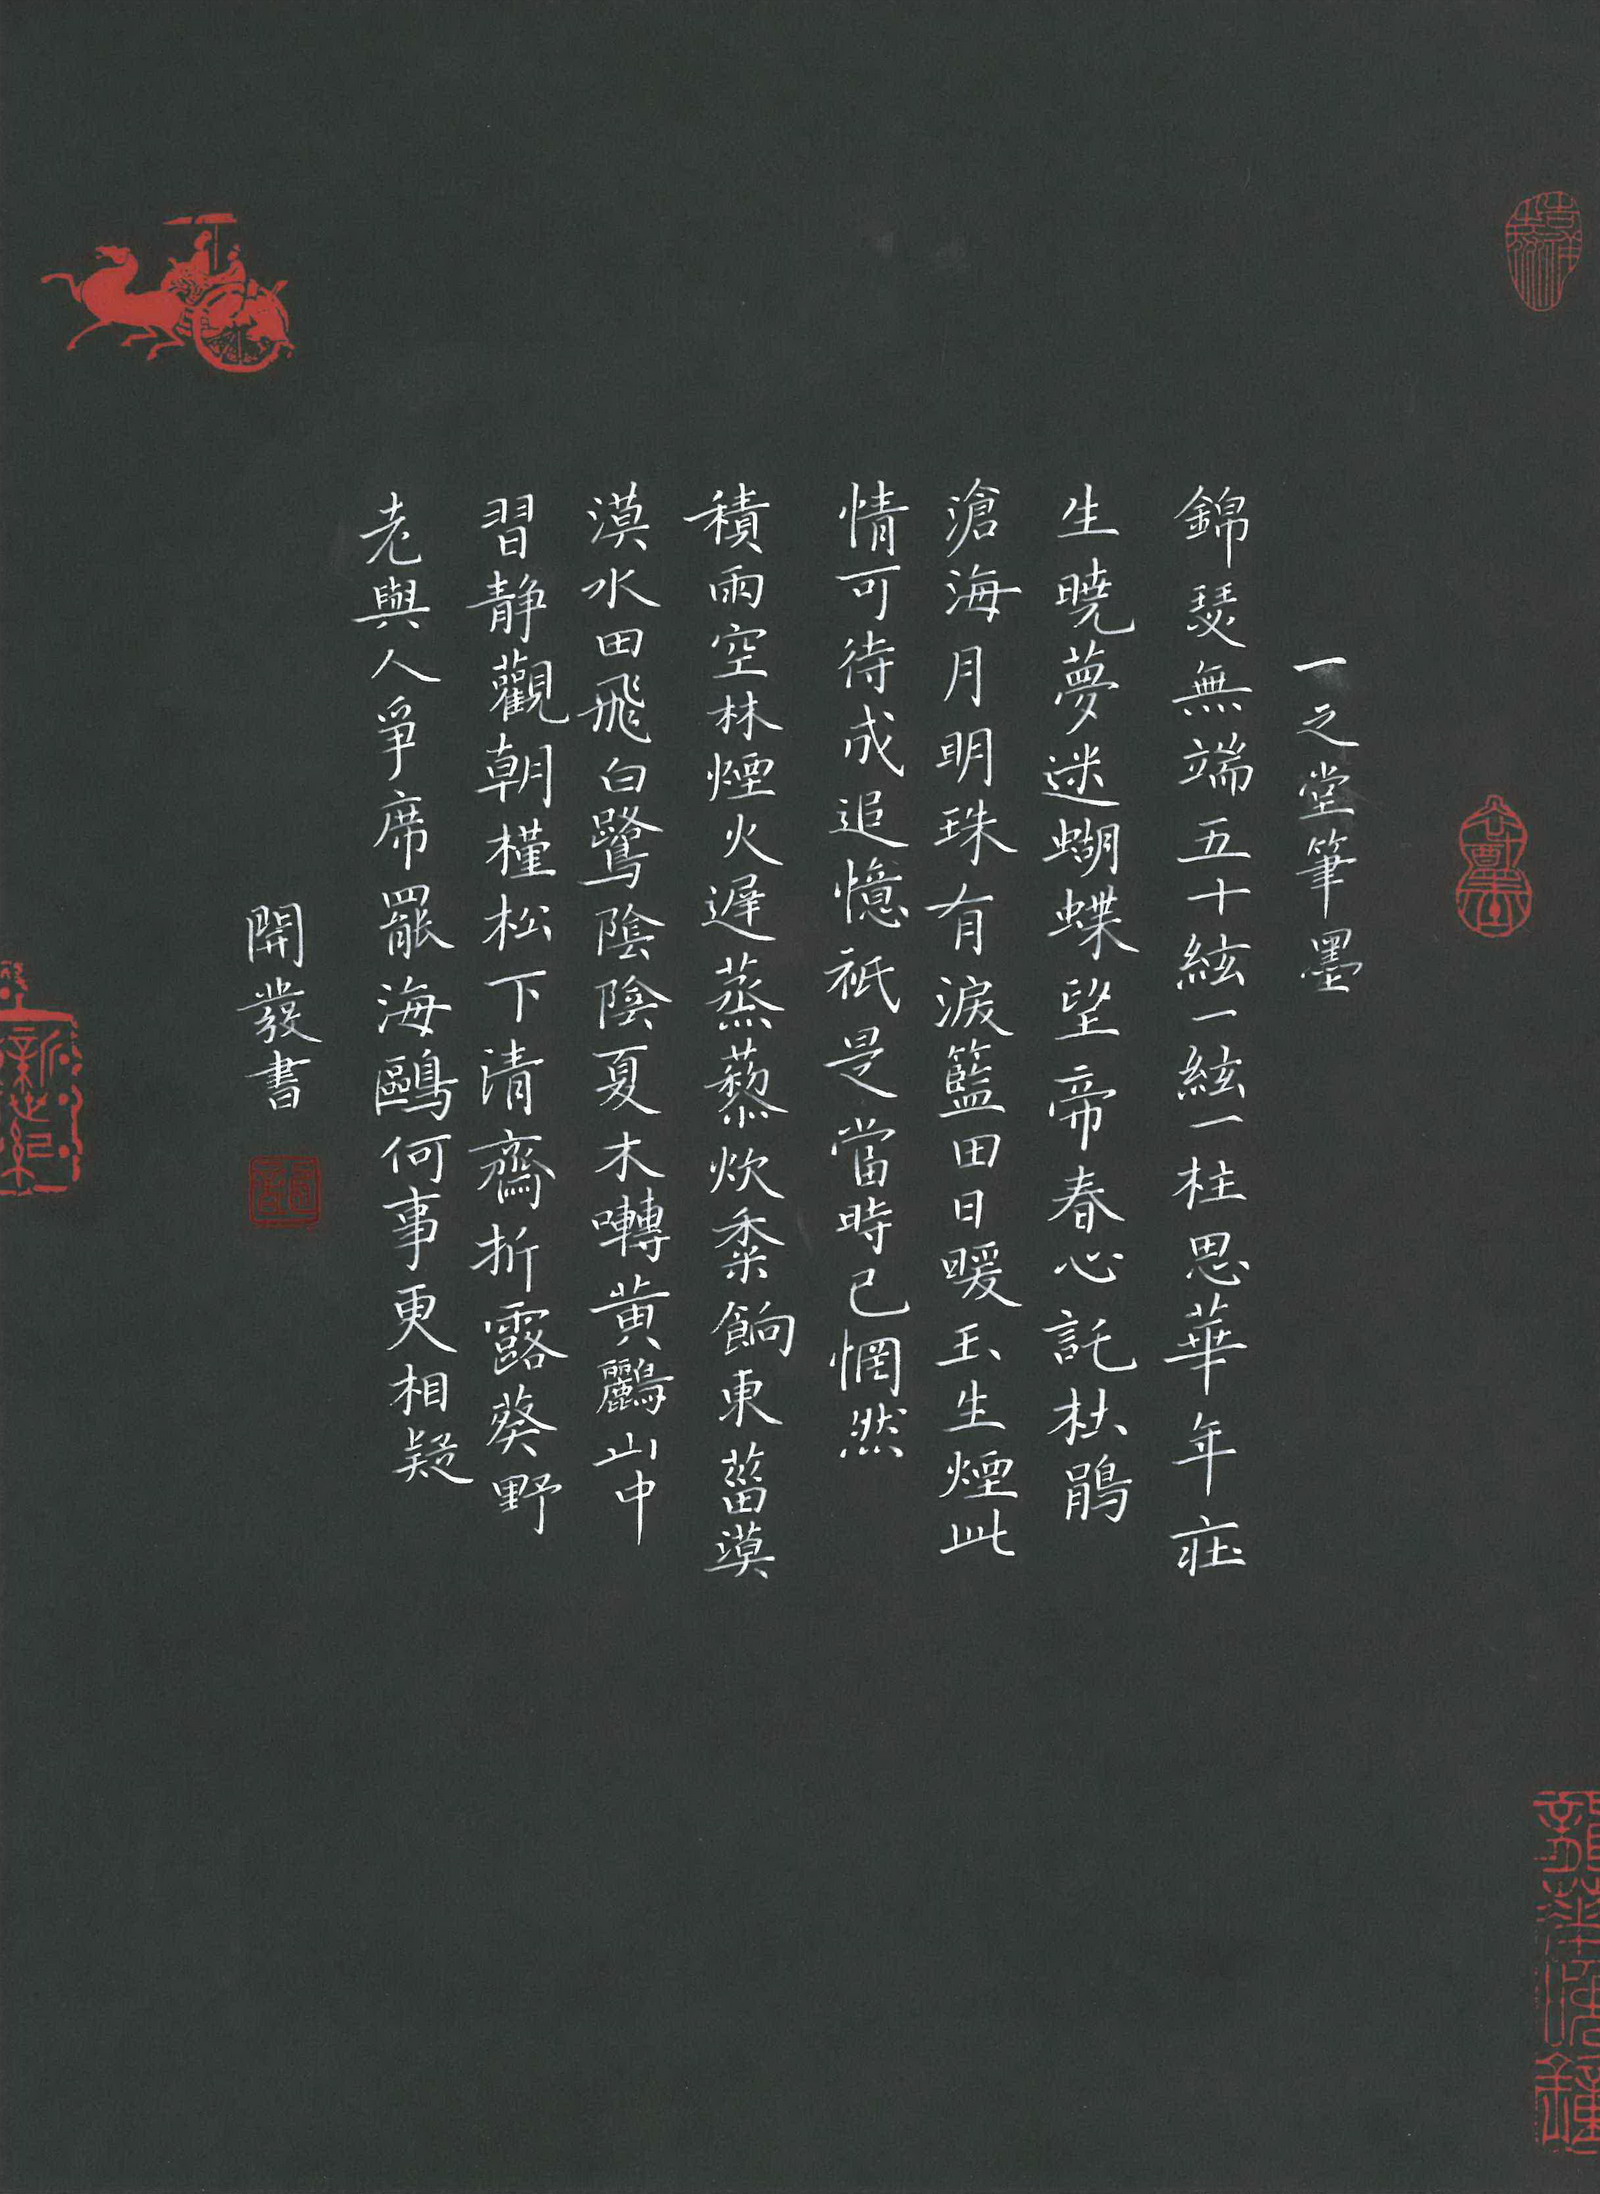 一之堂筆墨
錦瑟無端五十絃一絃一柱思華年莊
生曉夢迷蝴蝶望帝春心託杜鵑
滄海月明珠有淚籃田日暖玉生煙此
情可待成追憶祇是當時已惘然
積雨空林煙火遲蒸藜炊黍餉東菑漠
漠水田飛白鷺陰陰夏木囀黃鸝山中
習靜觀朝槿松下清齋折露葵野
老與人爭席罷海鷗何事更相疑
開發書
吉祥